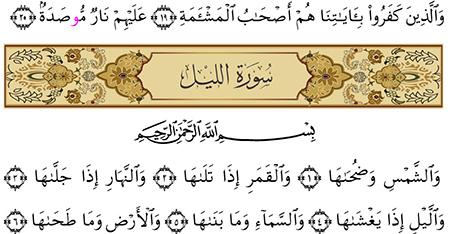 وَالَّذِينَ كَفَرُوا۟ بِـَٔايَـٰتِنَا هُمْ أَصْحَـٰبُ الْمَشْـَٔمَةِ ﴿١٩﴾ عَلَيْهِمْ نَارٌ مُّوصَدَةٌۢ ﴿٢٥﴾
سُورَةُ اللَّيْلِ
بِسْمِ اللَّهِ الرَّحْمَٰنِ الرَّحِيمِ
وَالشَّمْسِ وَضُحَـٰهَا ﴿١﴾ وَالْقَمَرِ إِذَا تَلَـٰهَا ﴿٢﴾ وَالنَّهَارِ إِذَا جَلَّـٰهَا ﴿٣﴾
وَالَّيْلِ إِذَا يَغْشَـٰهَا ﴿٤﴾ وَالسَّمَآءِ وَمَا بَنَـٰهَا ﴿٥﴾ وَالْأَرْضِ وَمَا طَحَـٰهَا ﴿٦﴾